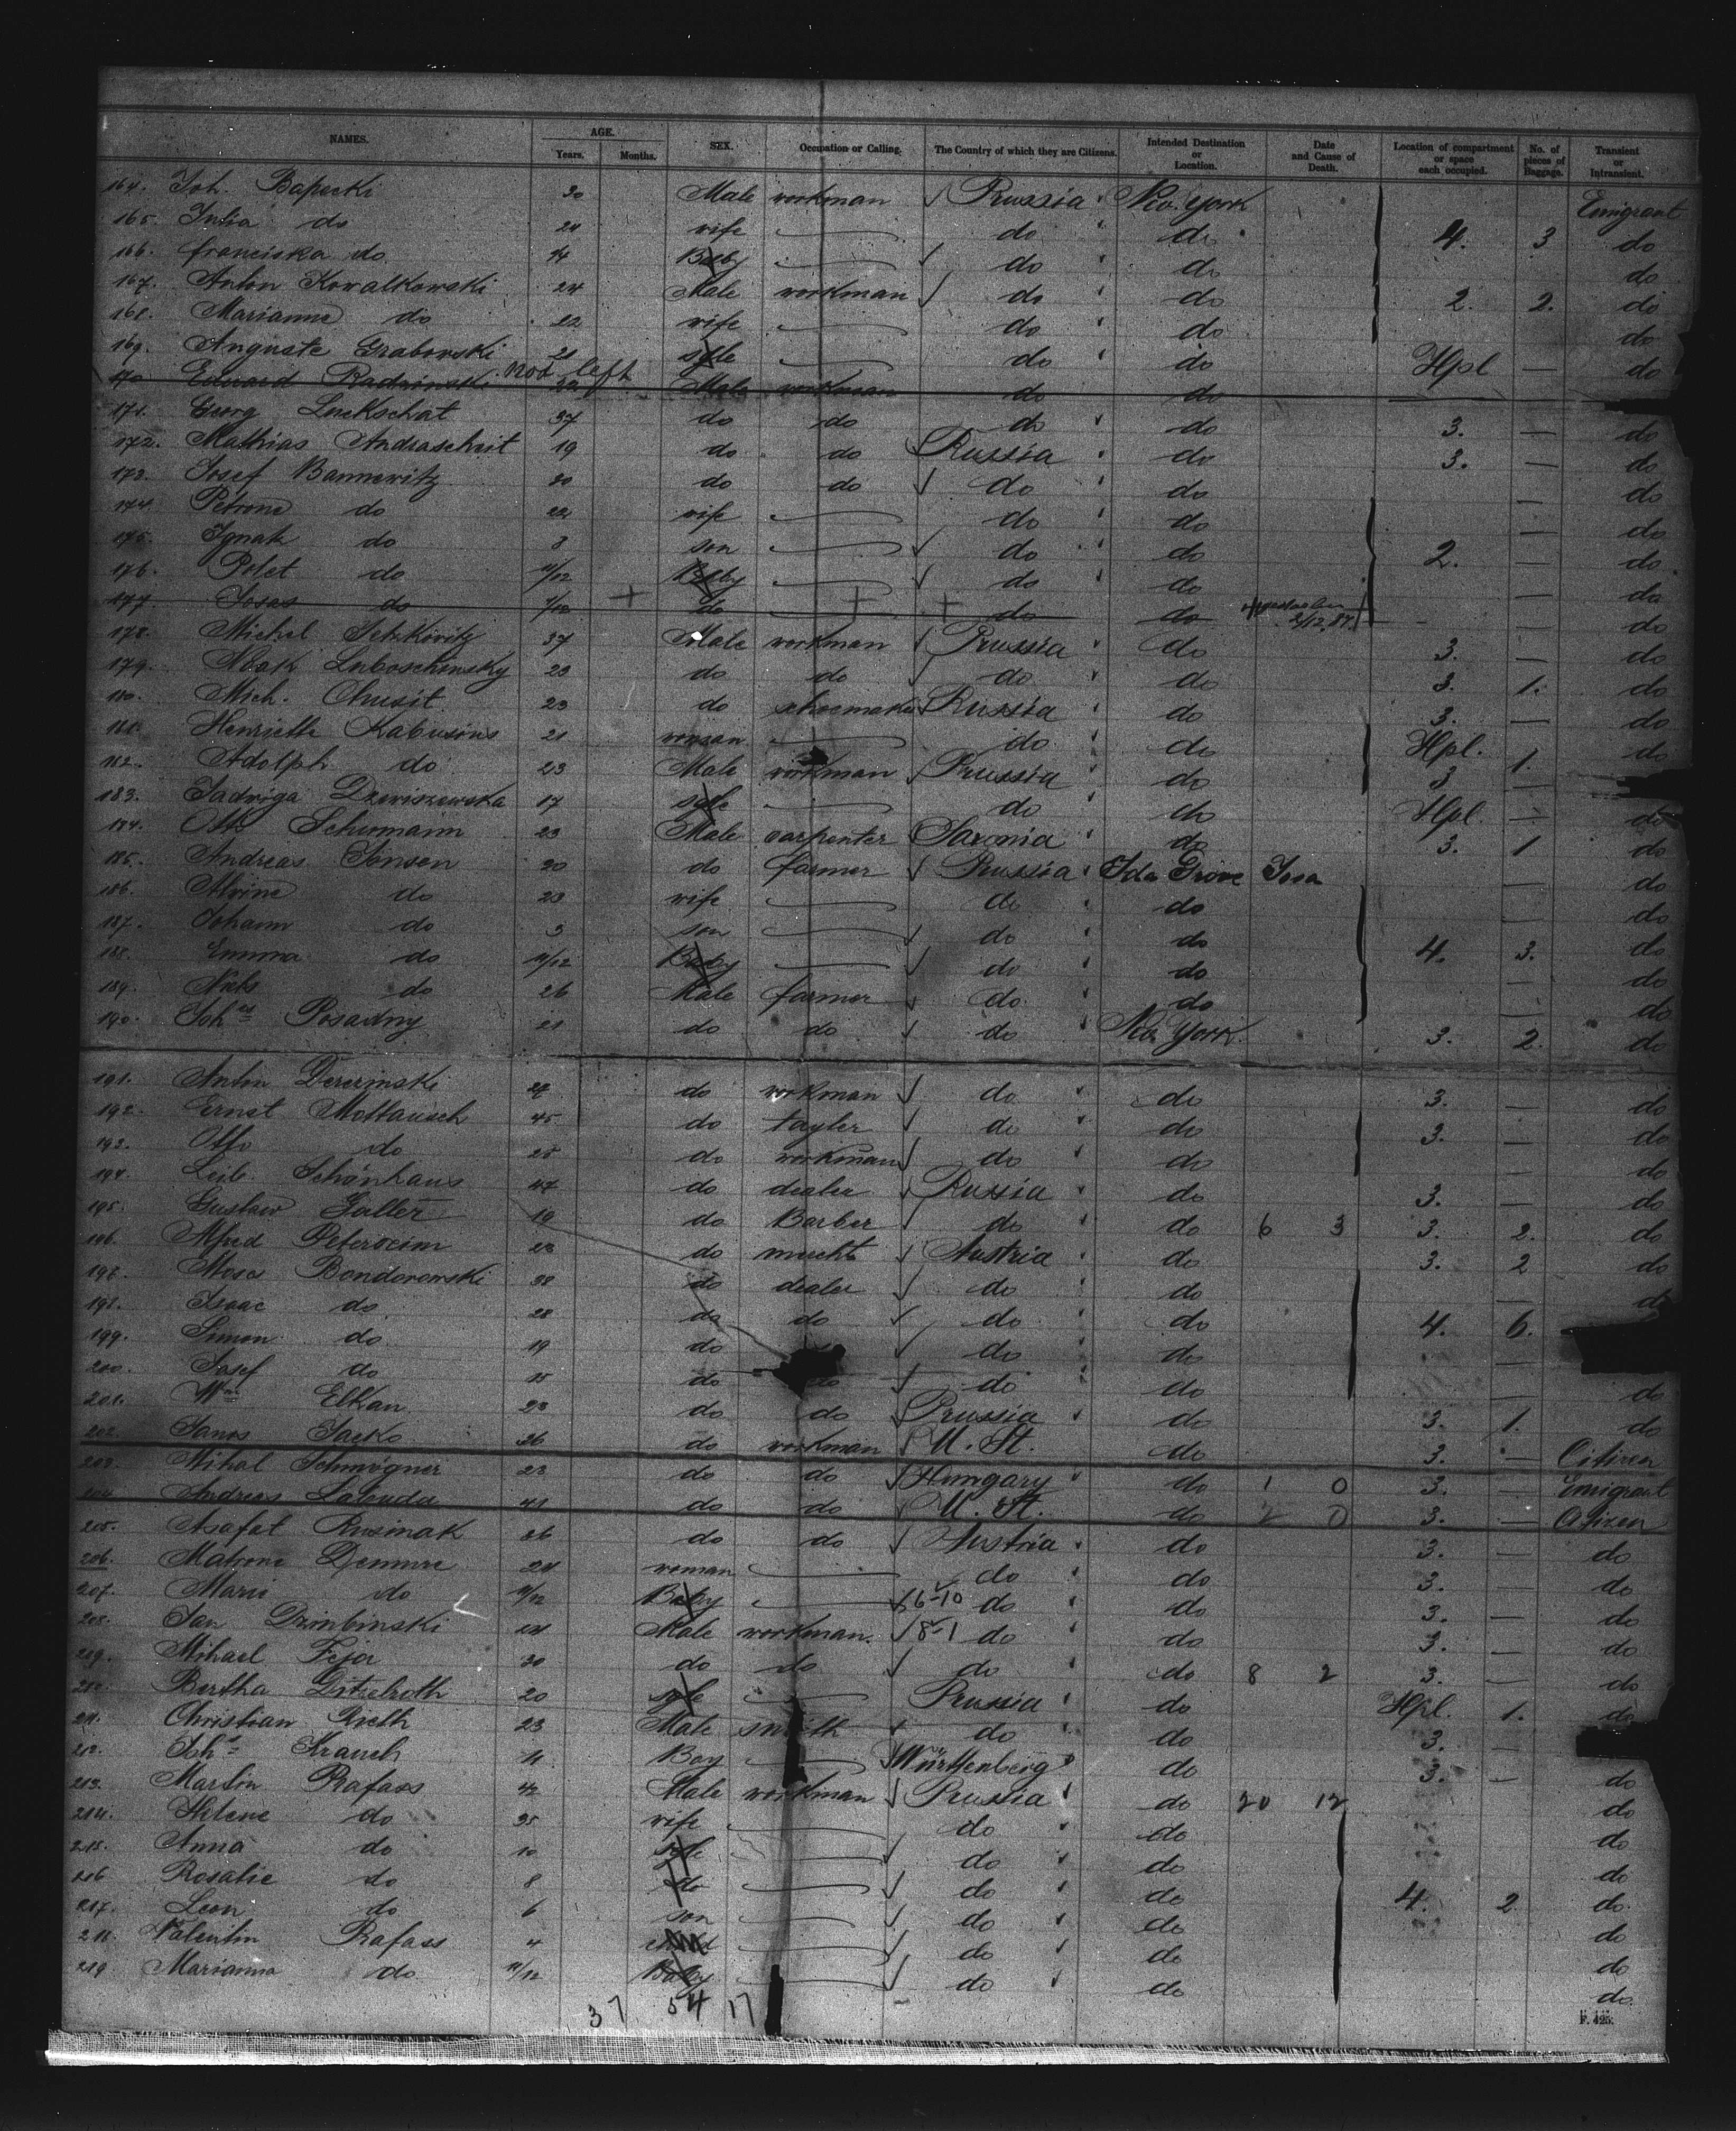 NAMES. AGE. Years. Months. SEX. Occupation or Calling. The Country of which they are Citizens. Intended Destination or Location. Date and Cause of Death. Location of compartment or space each occupied. No. of pieces of Baggage. Transient or Intransient.
164. Joh. 30 Male workman Prussia New York Emigrant
165. Julia do 24 wife do do 4. 3 do
166. franciska do Baby do do do
167. Anton Kowalkowski 24 Male workman do do 2. 2. do
168. Marianne do 22 wife do do do
169. Auguste Grabowski 21 sgle do do Hpl — do
170 Eduard Radzinski not left 22 Male workman do do
171. Georg Luckschat 37 do do do do 3. — do
172. Mathias Andrascheit 19 do do Russia do 3. — do
173. Josef Bannewitz 20 do do do do — do
174. Petrone do 22 wife do do — do
175. Ignatz do 3 son do do 2. — do
176. Polet do 11/12 Baby do do — do
177 Josas do 1/12 do do do gestorben 2/12.87. — do
178. Michel 37 Male workman Prussia do 3. — do
179. Luboschinsky 23 do do do do 3. 1. do
180. Mich. Chusit 23 do shoemaker Russia do 3. — do
181. Henriette Kabusius 21 woman do do Hpl. do
182. Adolph do 23 Male workman Prussia do 3 1.
183. Jadwiga Dzewiszewska 17 sgle do do Hpl. — do
184. Otto Schurmann 23 Male carpenter Saxonia do 3. 1 do
185. Andreas Jensen 20 do farmer Prussia Ida Grove Iowa — do
186. Alvine do 23 wife do do — do
187. Johann do 3 son do do 4. 3. do
188. Emma do 11/12 Baby do do — do
189. Niels do 26 Male farmer do do — do
190. Joh Posadny 21 do do do New York. 3. 2. do
191. Anton Dererinski 27 do workman do do 3. — do
192. Ernst Mottausch 45 do tayler do do 3. — do
193. Otto do 25 do workman do do — do
194. Leib Schönhaus 47 do dealer Russia do 3. — do
195. Gustav 19 do Barber do do 6 3 3. 2. do
196. Alfred 23 do mercht Austria do 3. 2 do
197. Moses Bondorowski 38 do dealer do do — do
198. Isaac do 28 do do do do 4. 6.
199. Simon do 19 do do do —
200. Josef do 15 do do do do — do
201. Wm Elkan 23 do do Prussia do 3. 1. do
202. Janos Jacko 36 do workman U. St. do 3. — Citizen
203. Mihal Schmögner 23 do do Hungary do 1 0 3. — Emigrant
204 Andreas Labuda 41 do do U. St. do 2 0 3. — Citizen
205. Asafat Rusinak 26 do do Austria do 3. — do
206. Matrone 24 woman do do 3. — do
207. Marie do 11/12 Baby 6-10 do do 3. — do
208. Jan Dzimbinski 24 Male workman. 8-1 do do 3. — do
209. Mihael Fejor 30 do do do do 8 2 3. — do
210. Bertha Ditzelroth 20 sgle Prussia do Hpl. 1. do
211. Christian Rieth 23 Male smith do do 3. —
212. Joh Krauch 11 Boy Württenberg do 3. — do
213. Martin Rafass 42 Male workman Prussia do 20 12 do
214. Helene do 35 wife do do do
215. Anna do 10 sgle do do do
216 Rosalie do 8 do do do 4. 2 do.
217. Leon do 6 son do do do
218. Valentin Rafass 4 do do do
219. Marianna do 11/12 Baby do do do.
37 54 17
F. 425.